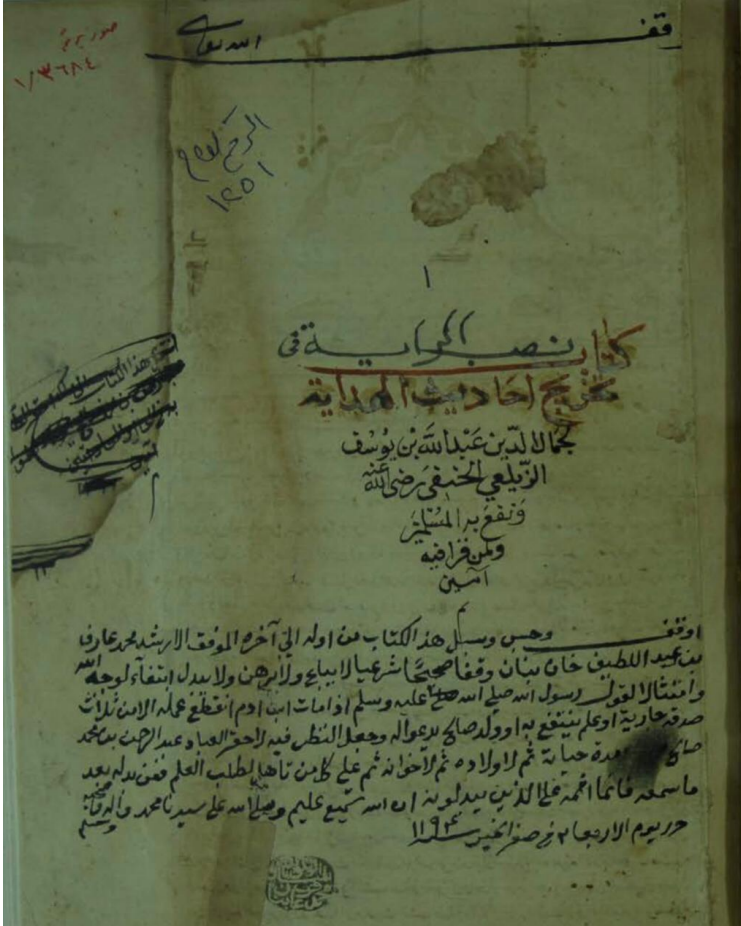 وقف
الله تعالى
١/٣٦٨٤
الرقم العام
١٢٥١
١
كتاب نصب الراية في
تخريج احاديث الهداية
لجمال الدين عبد الله بن يوسف
الزيلعي الحنفي رضي الله عنه
ونفع به المسلمين
ولمن قرا فيه
امين
اوقف وحبس وسبل هذ الكتاب من اوله الي آخره الموفق الارشد محمد عارف
بن عبد اللطيف خان بنان وقفا صحيحًا شرعيا لا يباع ولا يرهن ولا يبدل ابتغاء لوجه الله
وامتثالا لقول رسول الله صلي الله عليه وسلم اذا مات ابن ادم انقطع عمله الا من ثلاث
صدقة جارية او علم ينتفع به او ولد صالح يدعو اله وجعل النظر فيه لاحقر العباد عبد الرحمن بن محمد
صالح مدة حياته ثم لاولاده ثم لاخوانه ثم علي كل من تأهل لطلب العلم فمن بدله بعد
ما سمعه فانما اثمه علي الذين يبدلونه ان الله سميع عليم وصلي الله على سيدنا محمد واله وصحبه وسلم
حرر يوم الاربعا ٣ في صفر الخير سنة ١١٩٤